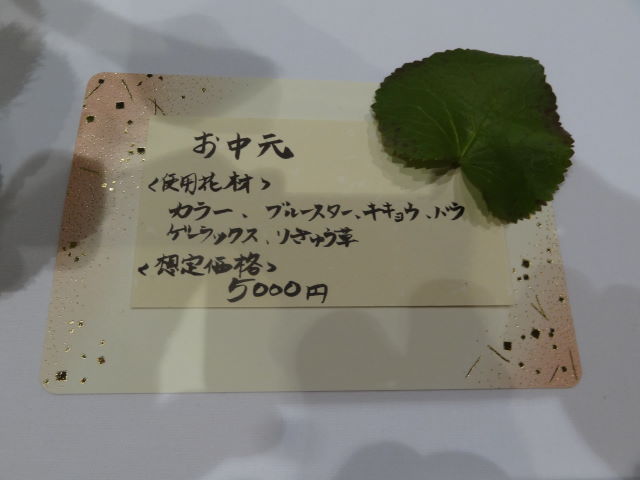 お中元
<使用花材>
カラー、ブルースター、キキョウ、バウ
ゲーラックス、りきゅう草
<想定価格>
5000円